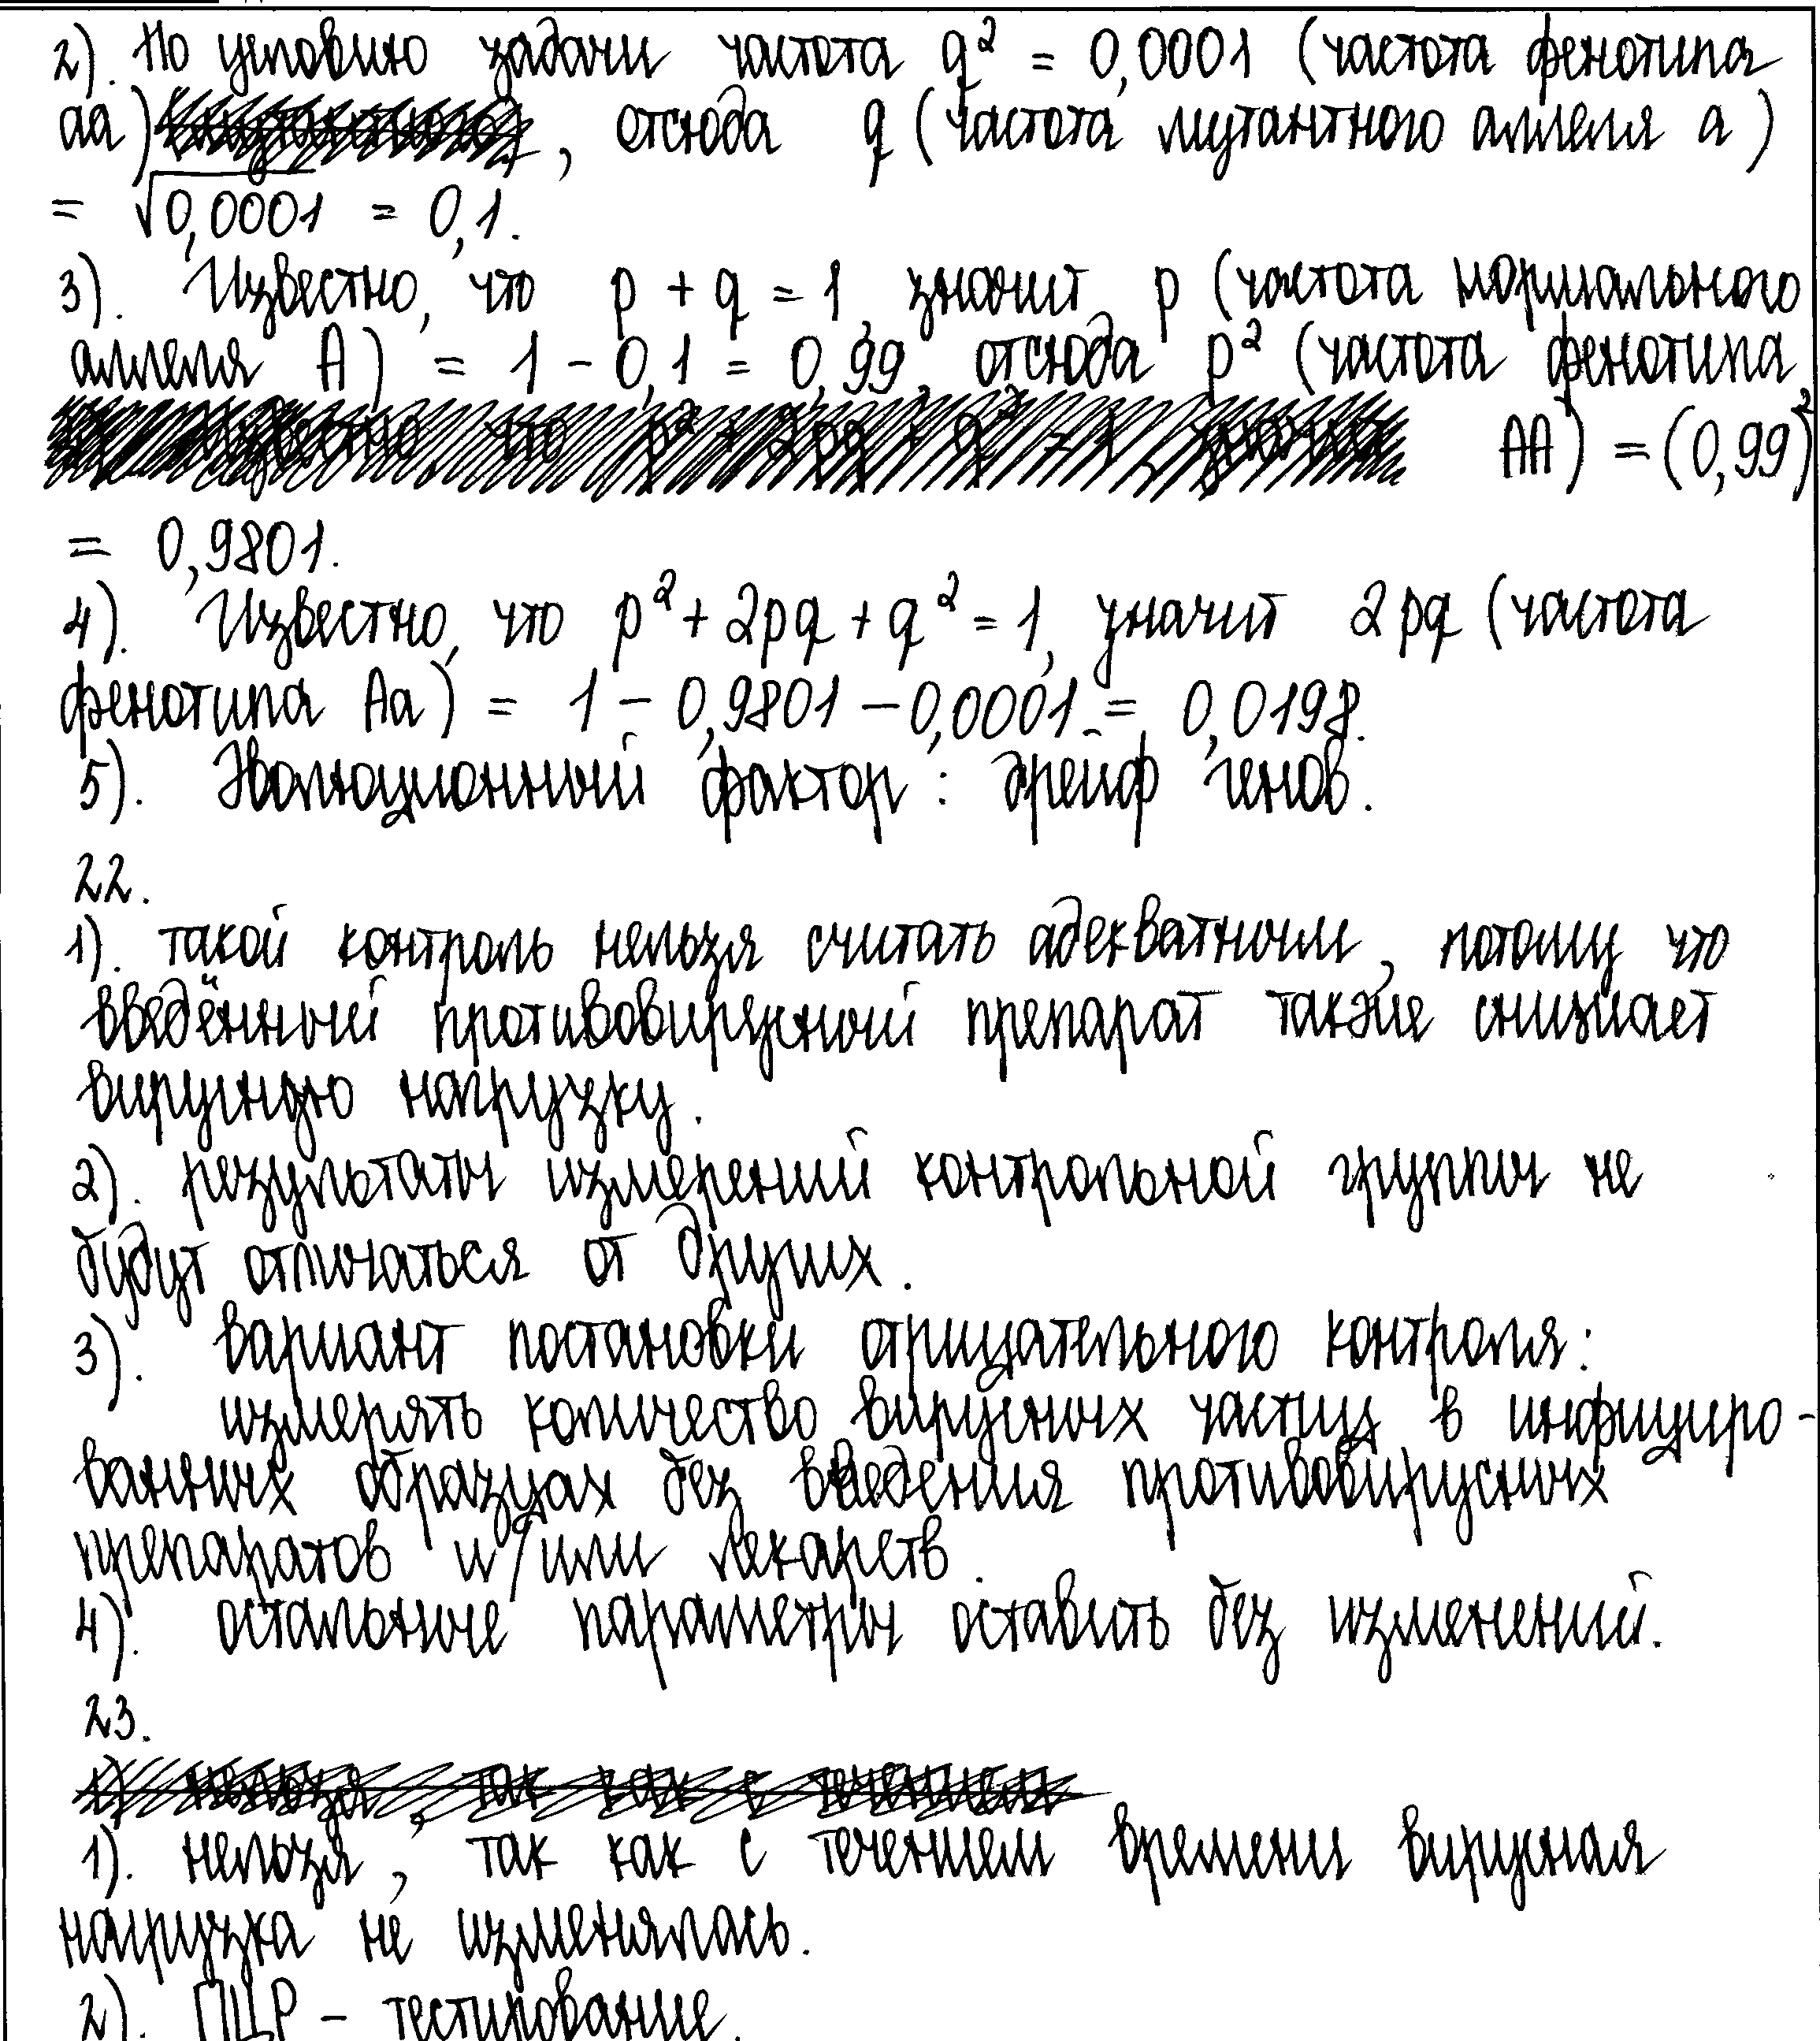 2). По условию задачи частота q² = 0,0001 (частота фенотипа
аа), отсюда q (частота мутантного аллеля а)
= √0,0001 = 0,1.
3). Известно, что p + q = 1, значит, p (частота нормального
аллеля А) = 1 - 0,1 = 0,99, отсюда p² (частота фенотипа
АА) = (0,99)²
= 0,9801.
4). Известно, что p² + 2pq + q² = 1, значит 2pq (частота
фенотипа Аа) = 1 - 0,9801 - 0,0001 = 0,0198.
5). Эволюционный фактор: дрейф генов.
22.
1). такой контроль нельзя считать адекватным, потому что
введённый противовирусный препарат также снижает
вирусную нагрузку.
2). результаты измерений контрольной группы не
будут отличаться от других.
3). вариант постановки отрицательного контроля:
измерять количество вирусных частиц в инфициро-
ванных образцах без введения противовирусных
препаратов и/или лекарств.
4). остальные параметры оставить без изменений.
23.
1) нельзя, так как с течением
1). нельзя, так как с течением времени вирусная
нагрузка не изменялась.
2). ПЦР - тестирование.